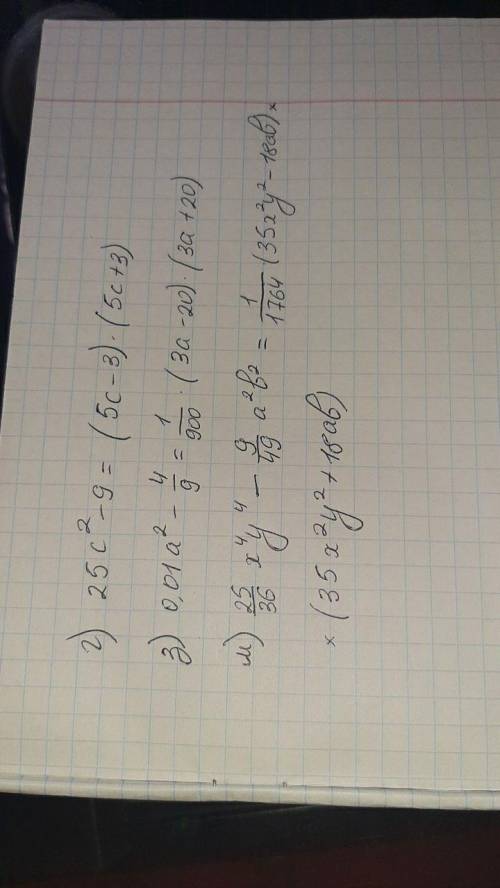 г) 25c² - 9 = (5c - 3) · (5c + 3)
з) 0,01a² - 4/9 = 1/900 · (3a - 20) · (3a + 20)
м) 25/36 x⁴y⁴ - 9/49 a²b² = 1/1764 (35x²y² - 18ab) ×
× (35x²y² + 18ab)